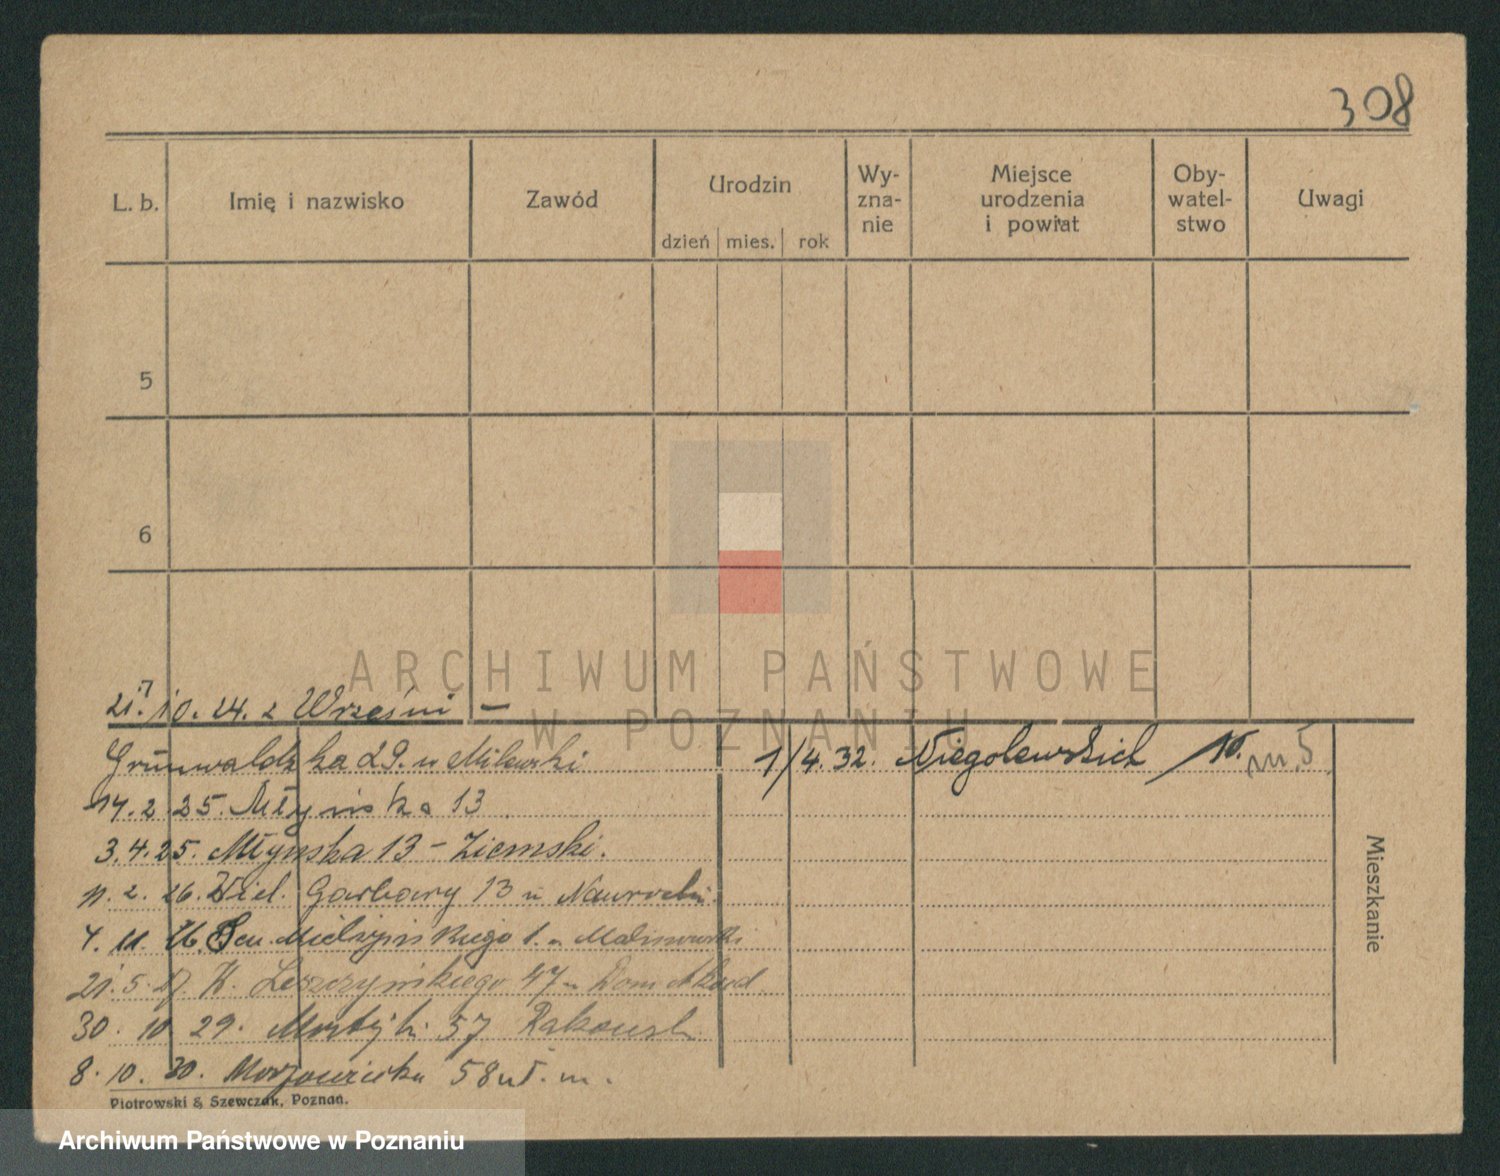 308
L. b. Imię i nazwisko Zawód Urodzin Wy-zna-nie Miejsce urodzenia i powiat Oby-watel-stwo Uwagi
dzień mies. rok
5
6
ARCHIWUM PAŃSTWOWE
W POZNANIU
10. 24. z Wrześni —
Grunwaldzka 29. u Milewski
1/4. 32. Niegolewskich 10. m. 5
14. 2. 25. Młyńska 13
3. 4. 25. Młyńska 13 - Ziemski.
11. 2. 26. Wiel. Garbary 13 u
4. 11. 26. Sew. Mielżyńskiego 1. u Malinowski
21. 5. K. Leszczyńskiego 47 u Dom Akad.
30. 10 29. 57 Rakowski
8. 10. 30. 58 m.
Mieszkanie
Piotrowski & Szewczak, Poznań.
Archiwum Państwowe w Poznaniu